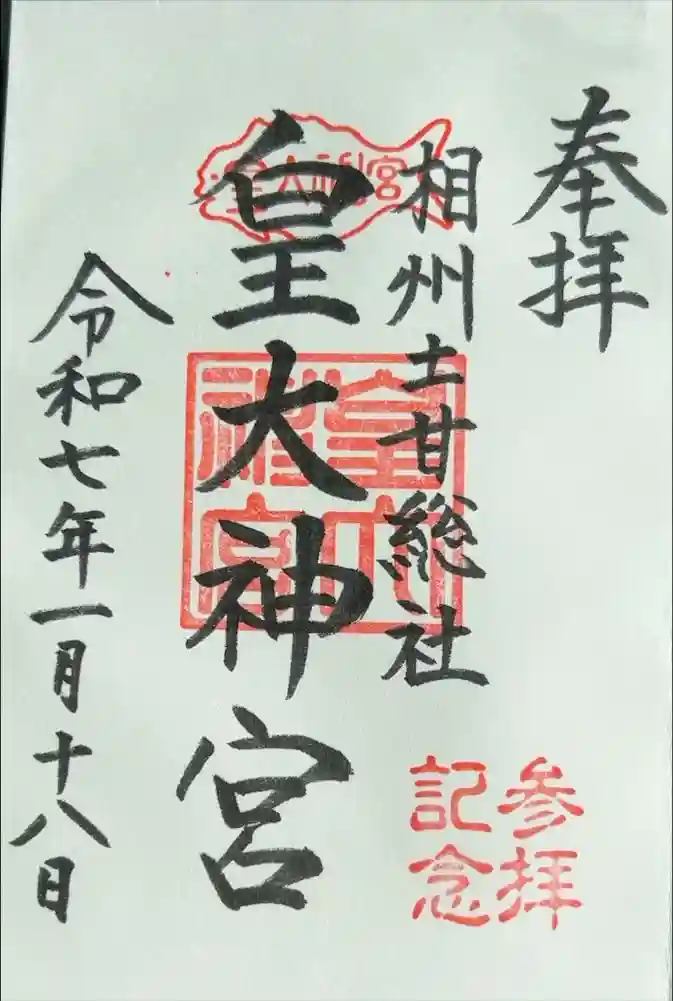 奉拝
相州土甘総社
皇大神宮
皇大神宮
皇大神宮
令和七年一月十八日
参拝
記念